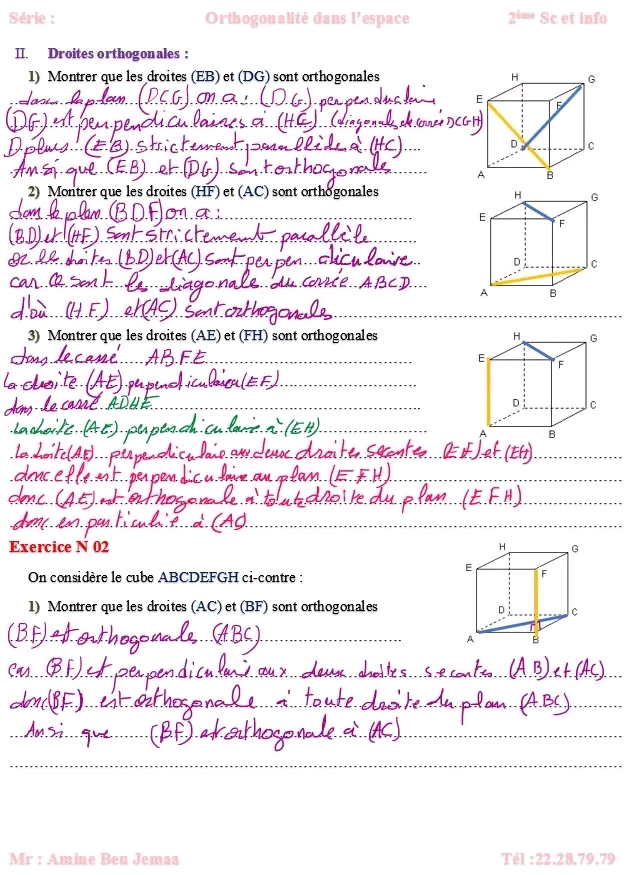 Série :
Orthogonalité dans l'espace
2ème Sc et info
II. Droites orthogonales :
1) Montrer que les droites (EB) et (DG) sont orthogonales
dans le plan (DCG) on a : (DG) perpendiculaire
(DG) est perpendiculaires à (HC) (diagonale de carré DCGH)
D plus : (EB) strictement parallèle à (HC)
Ansi que (EB) et (DG) sont orthogonales
2) Montrer que les droites (HF) et (AC) sont orthogonales
dans le plan (BDF) on a :
(BD) et (HF) sont strictement parallèle
or le droites (BD) et (AC) sont perpendiculaire
car ce sont les diagonale du carrée ABCD
d'où (HF) et (AC) sont orthogonales
3) Montrer que les droites (AE) et (FH) sont orthogonales
dans le carré ABFE
la droite (AE) perpendiculaire a (EF)
dans le carré ADHE
la droite (AE) perpendiculaire à (EH)
la droite (AE) perpendiculaire aux deux droites secantes (EF) et (EH)
donc elle est perpendiculaire au plan (EFH)
donc (AE) est orthogonale à toute droite du plan (EFH)
donc en particulié à
Exercice N 02
On considère le cube ABCDEFGH ci-contre :
1) Montrer que les droites (AC) et (BF) sont orthogonales
(BF) est orthogonale (ABC)
car (BF) est perpendiculaire aux deux droites secantes (AB) et (AC)
donc (BF) est orthogonale à toute droite du plan (ABC)
Ansi que (BF) et orthogonale à (AC)
H
G
E
F
D
C
A
B
H
G
E
F
D
C
A
B
H
G
E
F
D
C
A
B
H
G
E
F
D
C
A
B
Mr : Amine Ben Jemaa
Tél :22.28.79.79